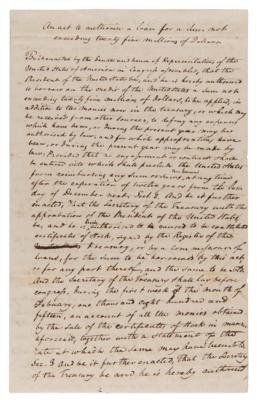 An act to authorise a Loan for a sum not
exceeding twenty five millions of Dollars
Be it enacted by the Senate and house of Representatives of the
United States of America in Congress assembled, that the
President of the United States be, and he is hereby authorised
to borrow on the credit of the United States a sum not
exceeding twenty five millions of dollars, to be applied, in
addition to the monies now in the treasury, or which may
be received from other sources, to defray any expences
which have been, or during the present year may be
authorised by law, and for which appropriations have
been, or during the present year may be made by
law: Provided that no engagement or contract shall
be entered into which shall preclude the United States
from reimbursing any sum or sums at any time
after the expiration of twelve years from the last
day of December next. Sec. 2. And be it further
enacted, That the Secretary of the Treasury with the
approbation of the President of the United States,
be, and he is authorised to be caused to be constituted
certificates of Stock, signed by the Register of the
Treasury, or by a commissioner of
loans, for the sum to be borrowed by this act,
or for any part thereof, and the same to be sold.
And the Secretary of the Treasury shall lay before
congress, during the first week of the month of
February, one thousand and eight hundred and
fifteen, an account of all the monies obtained
by the sale of the certificates of Stock in manner
aforesaid, together with a statement of the
rate at which the same may have been sold
Sec. 3 And be it further enacted, That the Secretary
of the Treasury be and he is hereby authorised